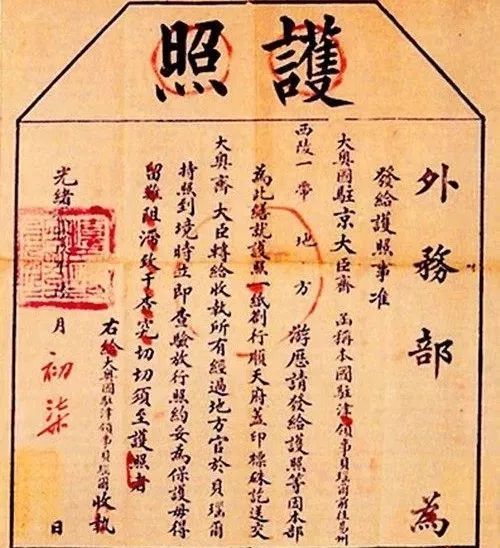 護照
外務部 為
發給護照事准
大奧國駐京大臣齊 函稱本國駐津領事貝瑞爾前往易州
西陵一帶地方 游歷請發給護照等因本部
為此繕就護照一紙劄行順天府蓋印標硃訖送交
大奧齊大臣轉給收執所有經過地方官於貝瑞爾
持照到境時立即查驗放行照約妥為保護毋得
留難阻滯致干查究切切須至護照者
右給大奧國駐津領事貝瑞爾收執
光緒 月初柒日